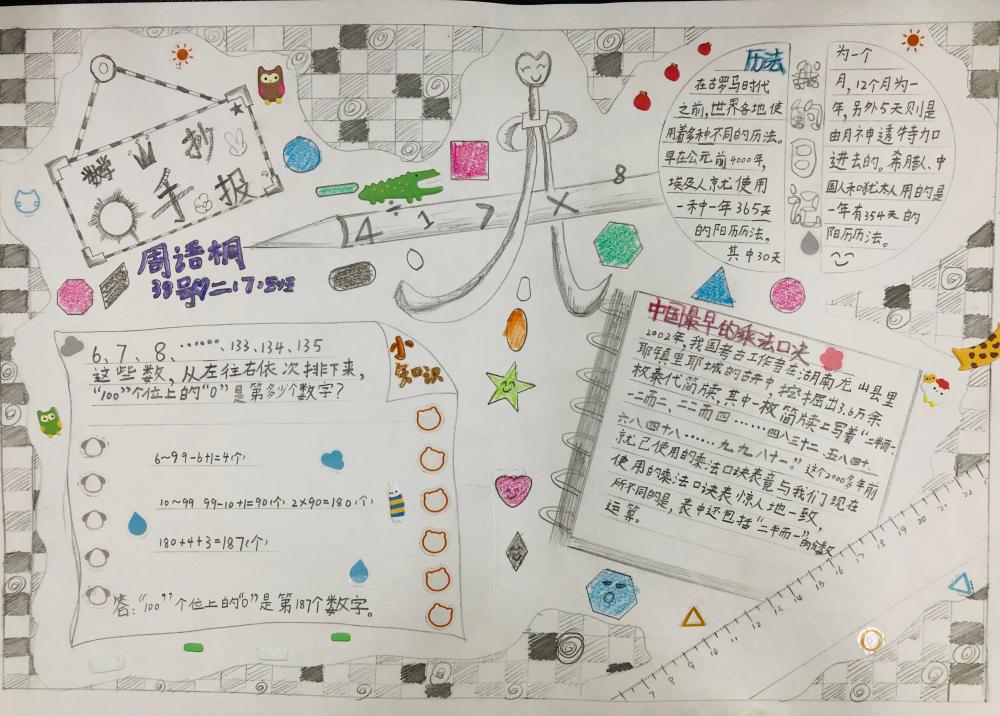 数学
手抄报
周语桐
39号 二、7班
4÷17×8
历法
在古罗马时代
之前,世界各地使
用着多种不同的历法。
早在公元前4000年,
埃及人就使用
一种一年365天
的阳历历法,
其中30天
为一个
月,12个月为一
年,另外5天则是
由月神透特加
进去的。希腊人、中
国人和犹太人用的是
一年有354天的
阴历历法。
小
知识
6、7、8、……、133、134、135
这些数,从左往右依次排下来,
“100”个位上的“0”是第多少个数字?
6~9 9-6+1=4(个)
10~99 99-10+1=90(个) 2×90=180(个)
180+4+3=187(个)
答:“100”个位上的“0”是第187个数字。
中国最早的乘法口决
2002年,我国考古工作者在湖南龙山县里
耶镇里耶城的古井中,挖掘出3.6万余
枚秦代简牍,其中一枚简牍上写着“二半而一、
一二而二、二二而四……四八三十二、五八四十、
六八四十八……九九八十一。”这个2000多年前
就已使用的乘法口诀表竟与我们现在
使用的乘法口诀表惊人地一致,
所不同的是,表中还包括“二半而一”的分数
运算。
7 8 9 10 11 12 13 14 15 16 17 18 19 20 21 22